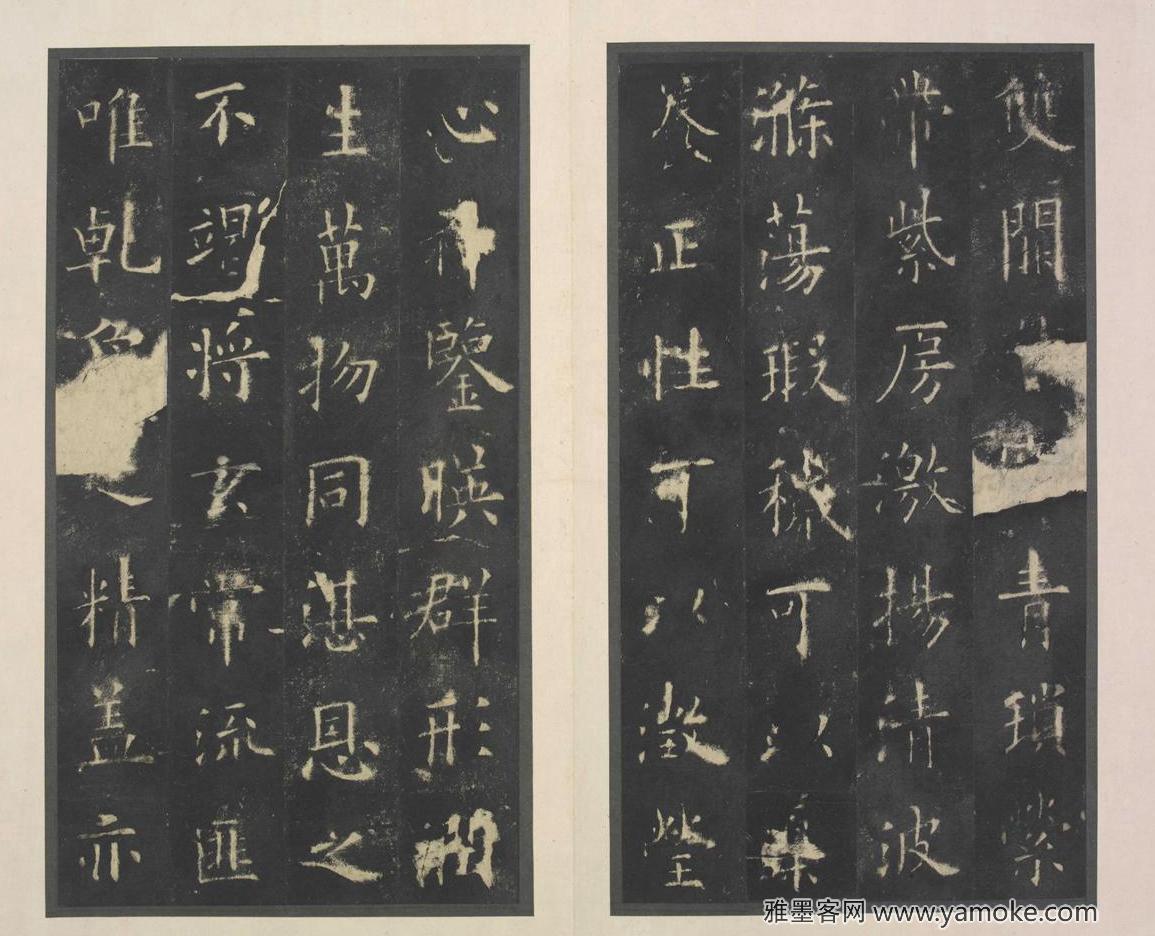 雙闕青瑣縈
帶紫房激揚清波
滌蕩瑕穢可以導
養正性可以澂瑩
心神鑒暎群形潤
生萬物同湛恩之
不竭將玄常流匪
唯乾象之精盖亦
雅墨客网 www.yamoke.com